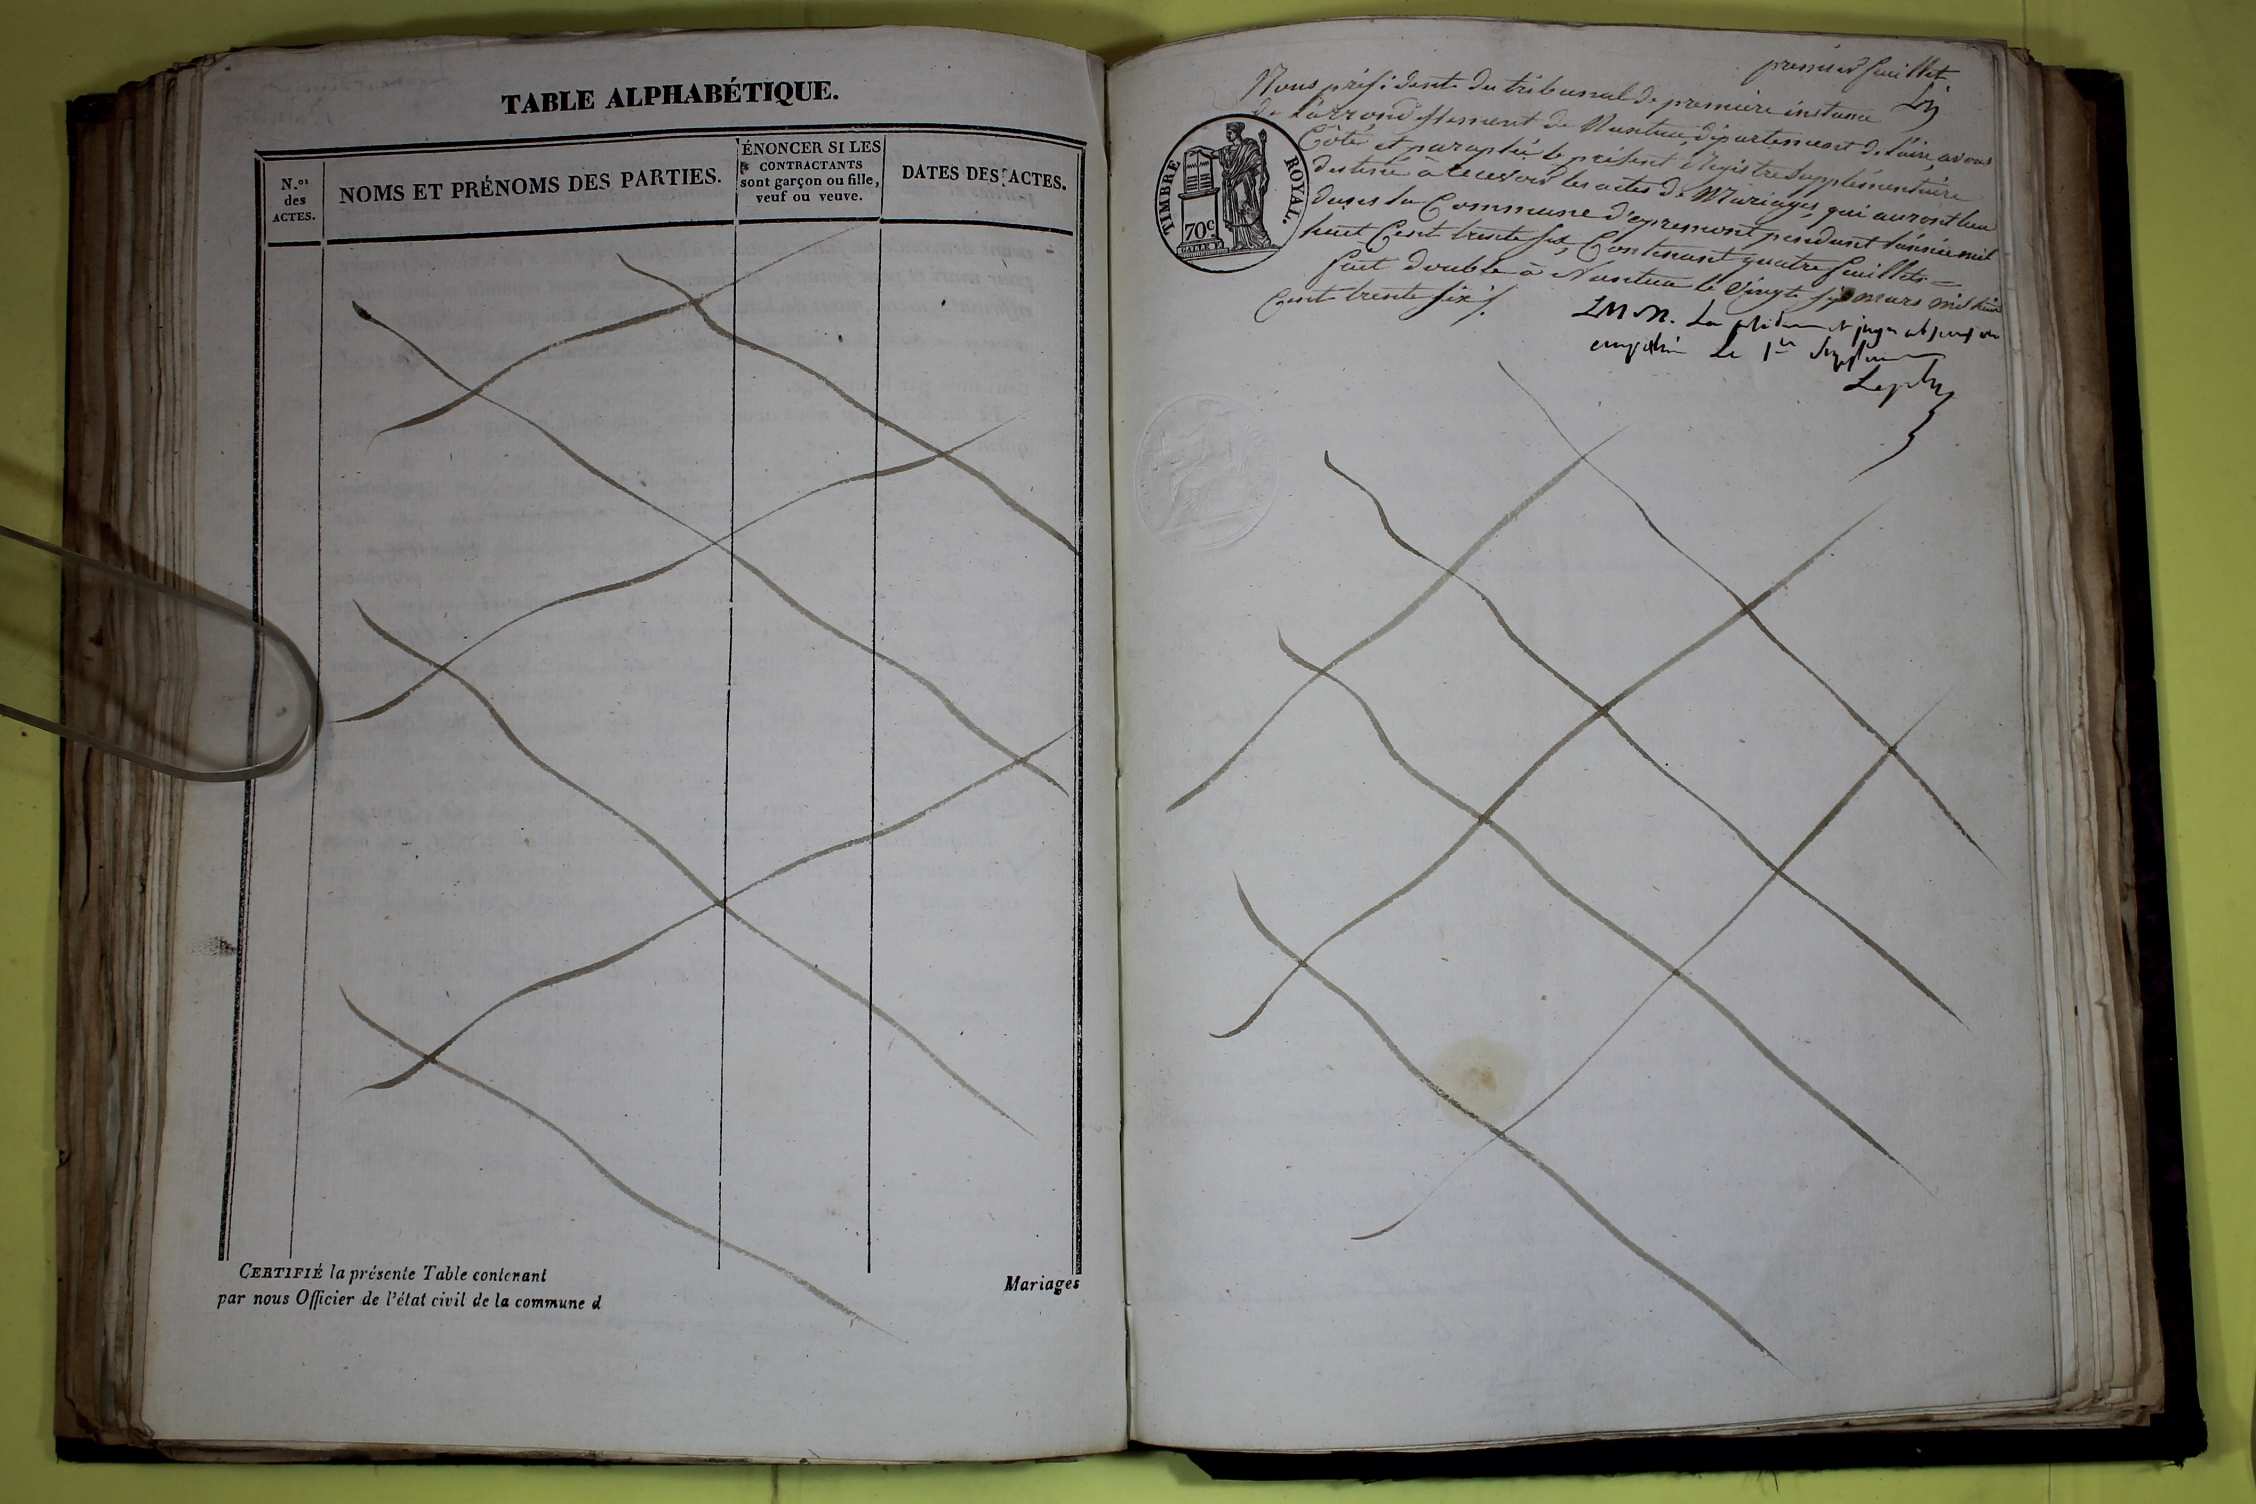 TABLE ALPHABÉTIQUE.
N.os des ACTES.
NOMS ET PRÉNOMS DES PARTIES.
ÉNONCER SI LES
CONTRACTANTS
sont garçon ou fille,
veuf ou veuve.
DATES DES ACTES.
CERTIFIÉ la présente Table contenant Mariages
par nous Officier de l'état civil de la commune d
premier feuillet
Nous président du tribunal de premiere instance
de l'arrondissement de Nantua, département de l'ain, avons
Côté et paraphé le présent Registre Supplémentaire
destiné à recevoir les actes de Mariages, qui auront lieu
dans la Commune d'apremont pendant l'année mil
huit Cent trente six, Contenant quatre feuillets =
fait double à Nantua le vingt six mars mil huit
Cent trente six /.
TIMBRE ROYAL.
70c
Le président et juges absens ou
empêchés Le 1er Suppléant